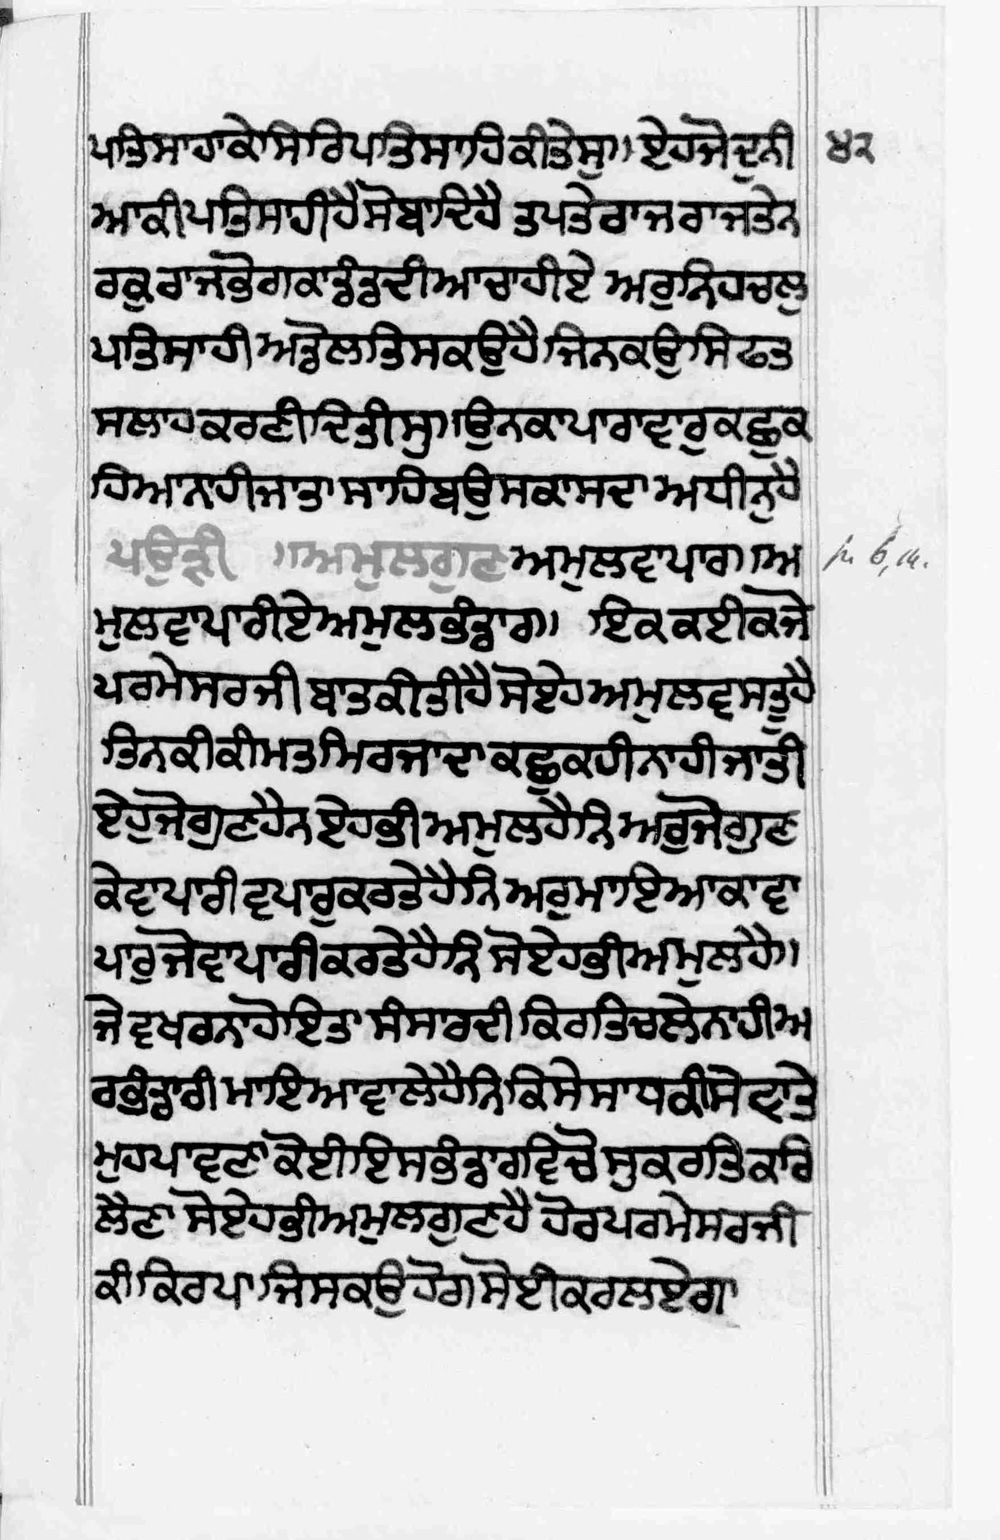 ਪਤਿਸਾਹਾਕੇਸਿਰਿਪਤਿਸਾਹਿਕੀਤੇਸੁ॥ ਏਹਜੋਦੁਨੀ ੪੨
ਆਕੀਪਤਿਸਾਹੀਹੈਸੋਬਾਦਿਹੈ ਤਪਤੇਰਾਜਰਾਜਤੇਨ
ਰਕੁਰਾਜਭੋਗਕਾਡੰਡਦੀਆਚਾਹੀਏ ਅਰੁਨਿਹਚਲੁ
ਪਤਿਸਾਹੀਅਡੋਲਤਿਸਕਉਹੈਜਿਨਕਉਸਿਫਤ
ਸਲਾਹਕਰਣੀਦਿਤੀਸੁ॥ਉਨਕਾਪਾਰਾਵਾਰੁਕਛੁਕ
ਹਿਆਨਹੀਜਾਤਾਸਾਹਿਬਉਸਕਾਸਦਾਅਧੀਨੁਹੈ
ਪਉੜੀ ॥ਅਮੁਲਗੁਣਅਮੁਲਵਾਪਾਰ॥ਅ
ਮੁਲਵਾਪਾਰੀਏਅਮੁਲਭੰਡਾਰ॥ ਇਕਕਈਕਜੋ
ਪਰਮੇਸਰਜੀਬਾਤਕੀਤੀਹੈਸੋਏਹਅਮੁਲਵਸਤੂਹੈ
ਤਿਨਕੀਕੀਮਤਮਿਰਜਾਦਾਕਛੁਕਹੀਨਾਹੀਜਾਤੀ
ਏਹੁਜੋਗੁਣਹੈਨਏਹਭੀਅਮੁਲਹੈਨਿਅਰੁਜੋਗੁਣ
ਕੇਵਾਪਾਰੀਵਪਾਰੁਕਰਤੇਹੈਨਿਅਰੁਮਾਇਆਕਾਵਾ
ਪਾਰੁਜੋਵਾਪਾਰੀਕਰਤੇਹੈਨਿਸੋਏਹਭੀਅਮੁਲਹੈ॥
ਜੇਵਖਰਨਾਹੋਇਤਾਸੰਸਾਰਦੀਕਿਰਤਿਚਲੇਨਾਹੀਅ
ਰਭੰਡਾਰੀਮਾਇਆਵਾਲੇਹੈਨਿਕਿਸੇਸਾਧਕੀਸੇਵਾਤੇ
ਮੁਹਪਾਵਣਾਕੋਈਇਸਭੰਡਾਰਵਿਚੋਸੁਕਰਤਿਕਰਿ
ਲੈਣਾਸੋਏਹਭੀਅਮੁਲਗੁਣਹੈਹੋਰਪਰਮੇਸਰਜੀ
ਕੀਕਿਰਪਾਜਿਸਕਉਹੋਗਸੋਈਕਰਲਏਗਾ